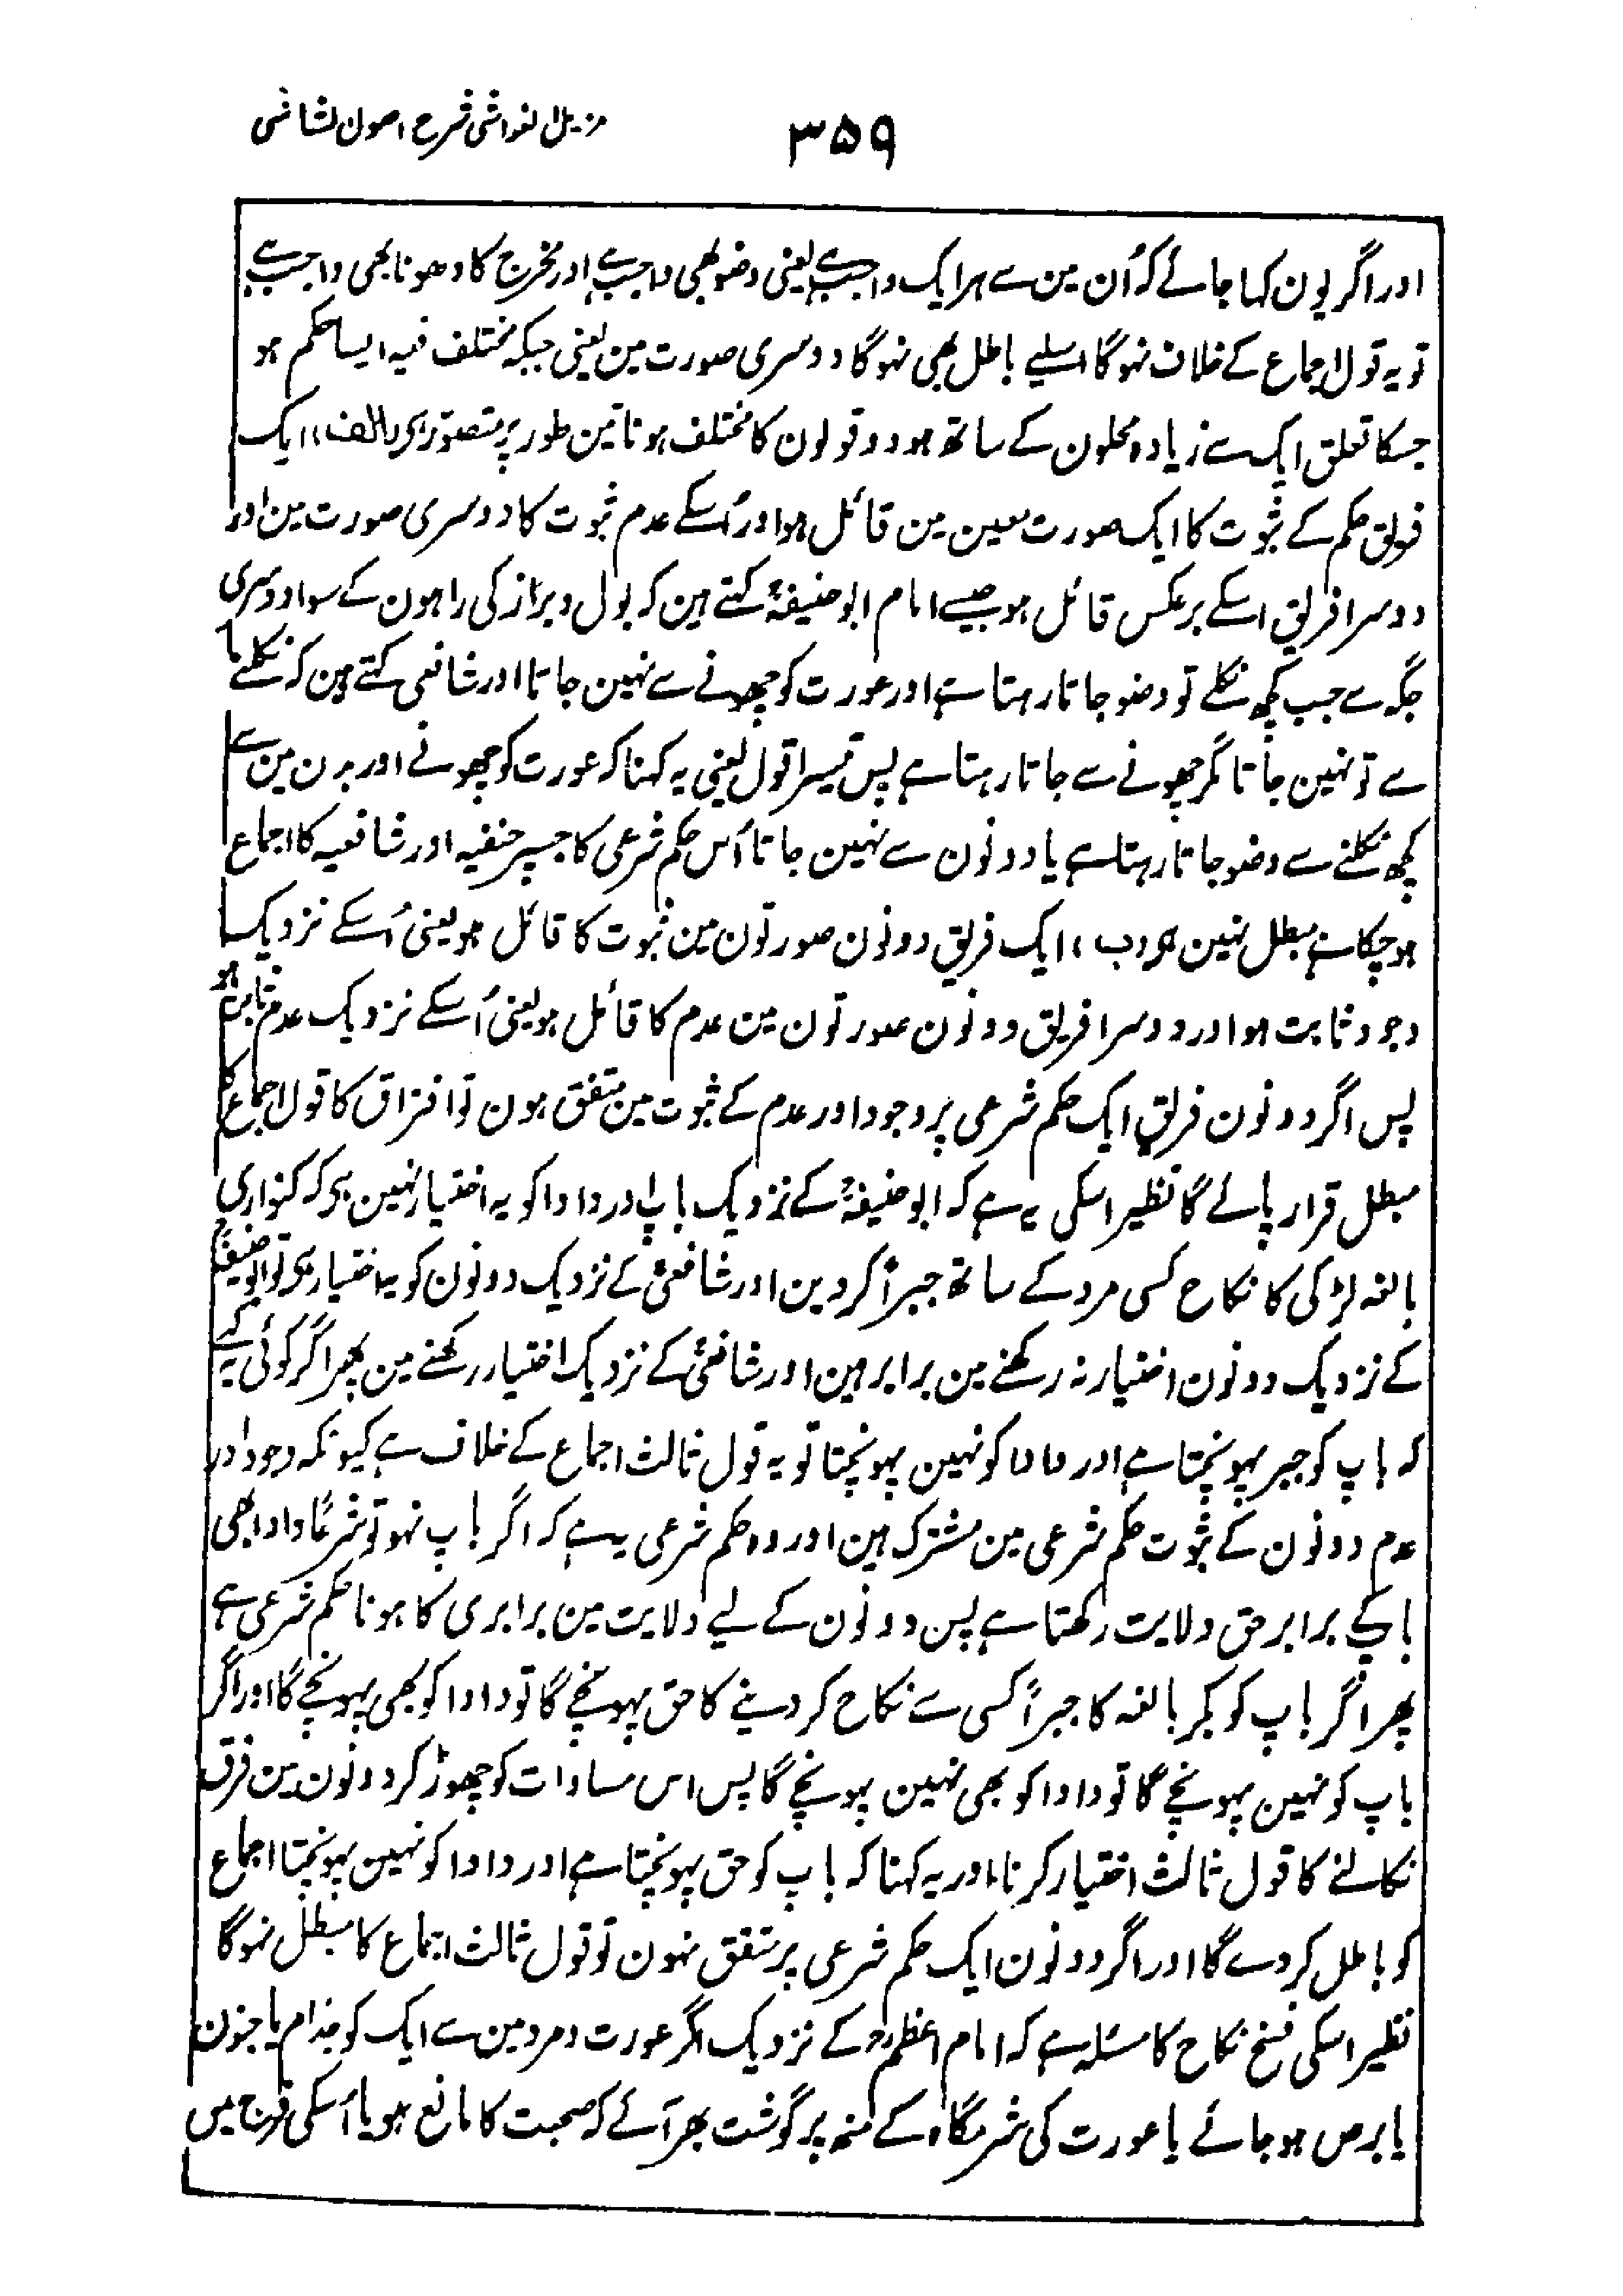 مزیل الغواشی شرح اصول الشاشی
۳۵۹
اور اگر یون کہا جائے کہ اُن مین سے ہر ایک واجب ہے یعنی وضو بھی واجب ہے اور مخرج کا دھونا بھی واجب ہے
تو یہ قول اجماع کے خلاف نہوگا اسلیے باطل بھی نہوگا دوسری صورت مین یعنی جبکہ مختلف فیہ ایسا حکم ہو
جسکا تعلق ایک سے زیادہ محلون کے ساتھ ہو دو قولون کا مختلف ہونا تین طور پر متصور ہی (الف) ایک
فریق حکم کے ثبوت کا ایک صورت معین مین قائل ہو اور اُسکے عدم ثبوت کا دوسری صورت مین اور
دوسرا فریق اسکے برعکس قائل ہو جیسے امام ابو حنیفہؒ کہتے ہین کہ بول و براز کی راہون کے سوا دوسری
جگہ سے جب کچھ نکلے تو وضو جاتا رہتا ہے اور عورت کو چھونے سے نہین جاتا اور شافعی کہتے ہین کہ نکلنے
سے تو نہین جاتا مگر چھونے سے جاتا رہتا ہے پس تیسرا قول یعنی یہ کہنا کہ عورت کو چھونے اور بدن مین سے
کچھ نکلنے سے وضو جاتا رہتا ہے یا دونون سے نہین جاتا اُس حکم شرعی کا جسپر حنفیہ اور شافعیہ کا اجماع
ہو چکا ہے مبطل نہین ہی (ب) ایک فریق دونون صورتون مین ثبوت کا قائل ہو یعنی اُسکے نزدیک
وجود ثابت ہو اور دوسرا فریق دونون صورتون مین عدم کا قائل ہو یعنی اُسکے نزدیک عدم ثابت ہو
پس اگر دونون فریق ایک حکم شرعی پر وجود اور عدم کے ثبوت مین متفق ہون تو افتراق کا قول اجماع کا
مبطل قرار پائے گا نظیر اسکی یہ ہے کہ ابو حنیفہؒ کے نزدیک باپ اور دادا کو یہ اختیار نہین ہی کہ کنواری
بالغہ لڑکی کا نکاح کسی مرد کے ساتھ جبراً کر دین اور شافعیؒ کے نزدیک دونون کو یہ اختیار ہی تو ابو حنیفہؒ
کے نزدیک دونون اختیار نہ رکھنے مین برابر ہین اور شافعیؒ کے نزدیک اختیار رکھنے مین پھر اگر کوئی یہ کہے
کہ باپ کو جبر پہونچتا ہے اور دادا کو نہین پہونچتا تو یہ قول ثالث اجماع کے خلاف ہے کیونکہ وجود اور
عدم دونون کے ثبوت حکم شرعی مین مشترک ہین اور وہ حکم شرعی یہ ہے کہ اگر باپ نہو تو شرعًا دادا بھی
باپ کے برابر حق ولایت رکھتا ہے پس دونون کے لیے ولایت مین برابری کا ہونا حکم شرعی ہے
پھر اگر باپ کو بکر بالغہ کا جبراً کسی سے نکاح کر دینے کا حق پہونچے گا تو دادا کو بھی پہونچے گا اور اگر
باپ کو نہین پہونچے گا تو دادا کو بھی نہین پہونچے گا پس اس مساوات کو چھوڑ کر دونون مین فرق
نکالنے کا قول ثالث اختیار کرنا اور یہ کہنا کہ باپ کو حق پہونچتا ہے اور دادا کو نہین پہونچتا اجماع
کو باطل کر دے گا اور اگر دونون ایک حکم شرعی پر متفق نہون تو قول ثالث اجماع کا مبطل نہوگا
نظیر اسکی فسخ نکاح کا مسئلہ ہے کہ امام اعظمؒ کے نزدیک اگر عورت و مرد مین سے ایک کو جذام یا جنون
یا برص ہو جائے یا عورت کی شرمگاہ کے منہ پر گوشت بھر آئے کہ صحبت کا مانع ہو یا اُسکی فرج میں